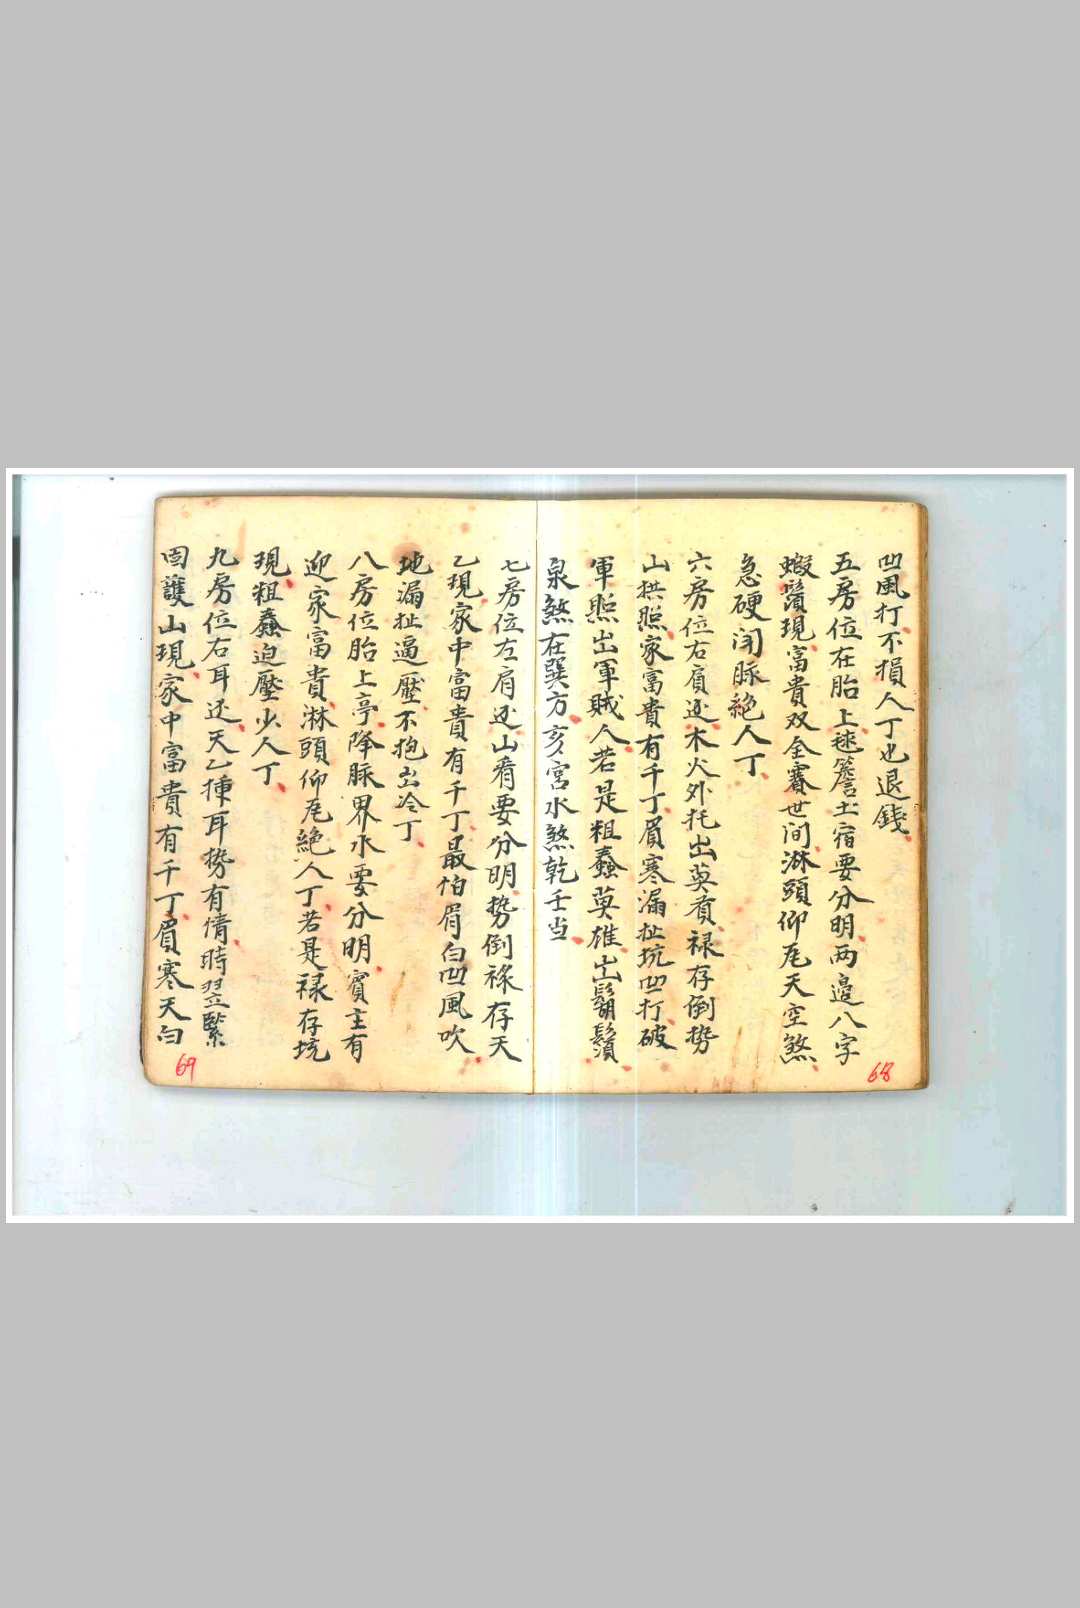 凹風打不損人丁也退錢
五房位在胎上毬簷士宿要分明两邉八字
蝦鬚現富貴双全賽世间淋頭仰瓦天空煞
急硬闭脉絶人丁
六房位右肩还木火外托出英賁禄存倒势
山拱照家富貴有千丁眉寒漏扯坑凹打破
軍照出軍賊人若是粗蠢英雄出鬍鬚
泉煞在巽方亥宮水煞乾壬当
七房位左肩还山看要分明势倒禄存天
乙現家中富貴有千丁最怕眉白凹風吹
地漏扯逼壓不抱出冷丁
八房位胎上亭降脉界水要分明賓主有
迎家富貴淋頭仰瓦絶人丁若是禄存坑
現粗蠢迫壓少人丁
九房位右耳还天乙揷耳势有情時翌緊
固護山現家中富貴有千丁眉寒天白
68
69